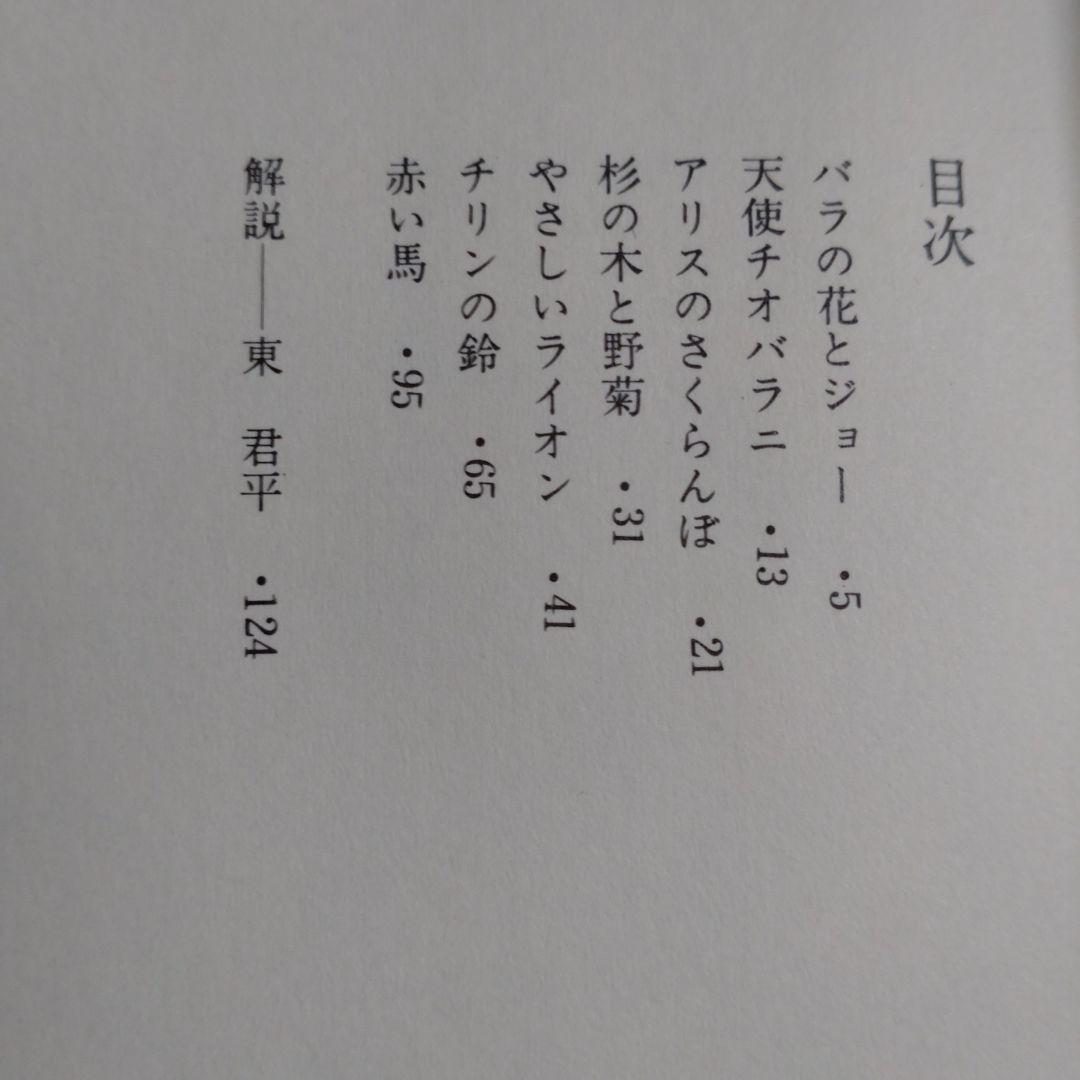 目次
バラの花とジョー ・5
天使チオバラニ ・13
アリスのさくらんぼ ・21
杉の木と野菊 ・31
やさしいライオン ・41
チリンの鈴 ・65
赤い馬 ・95
解説――東 君平 ・124